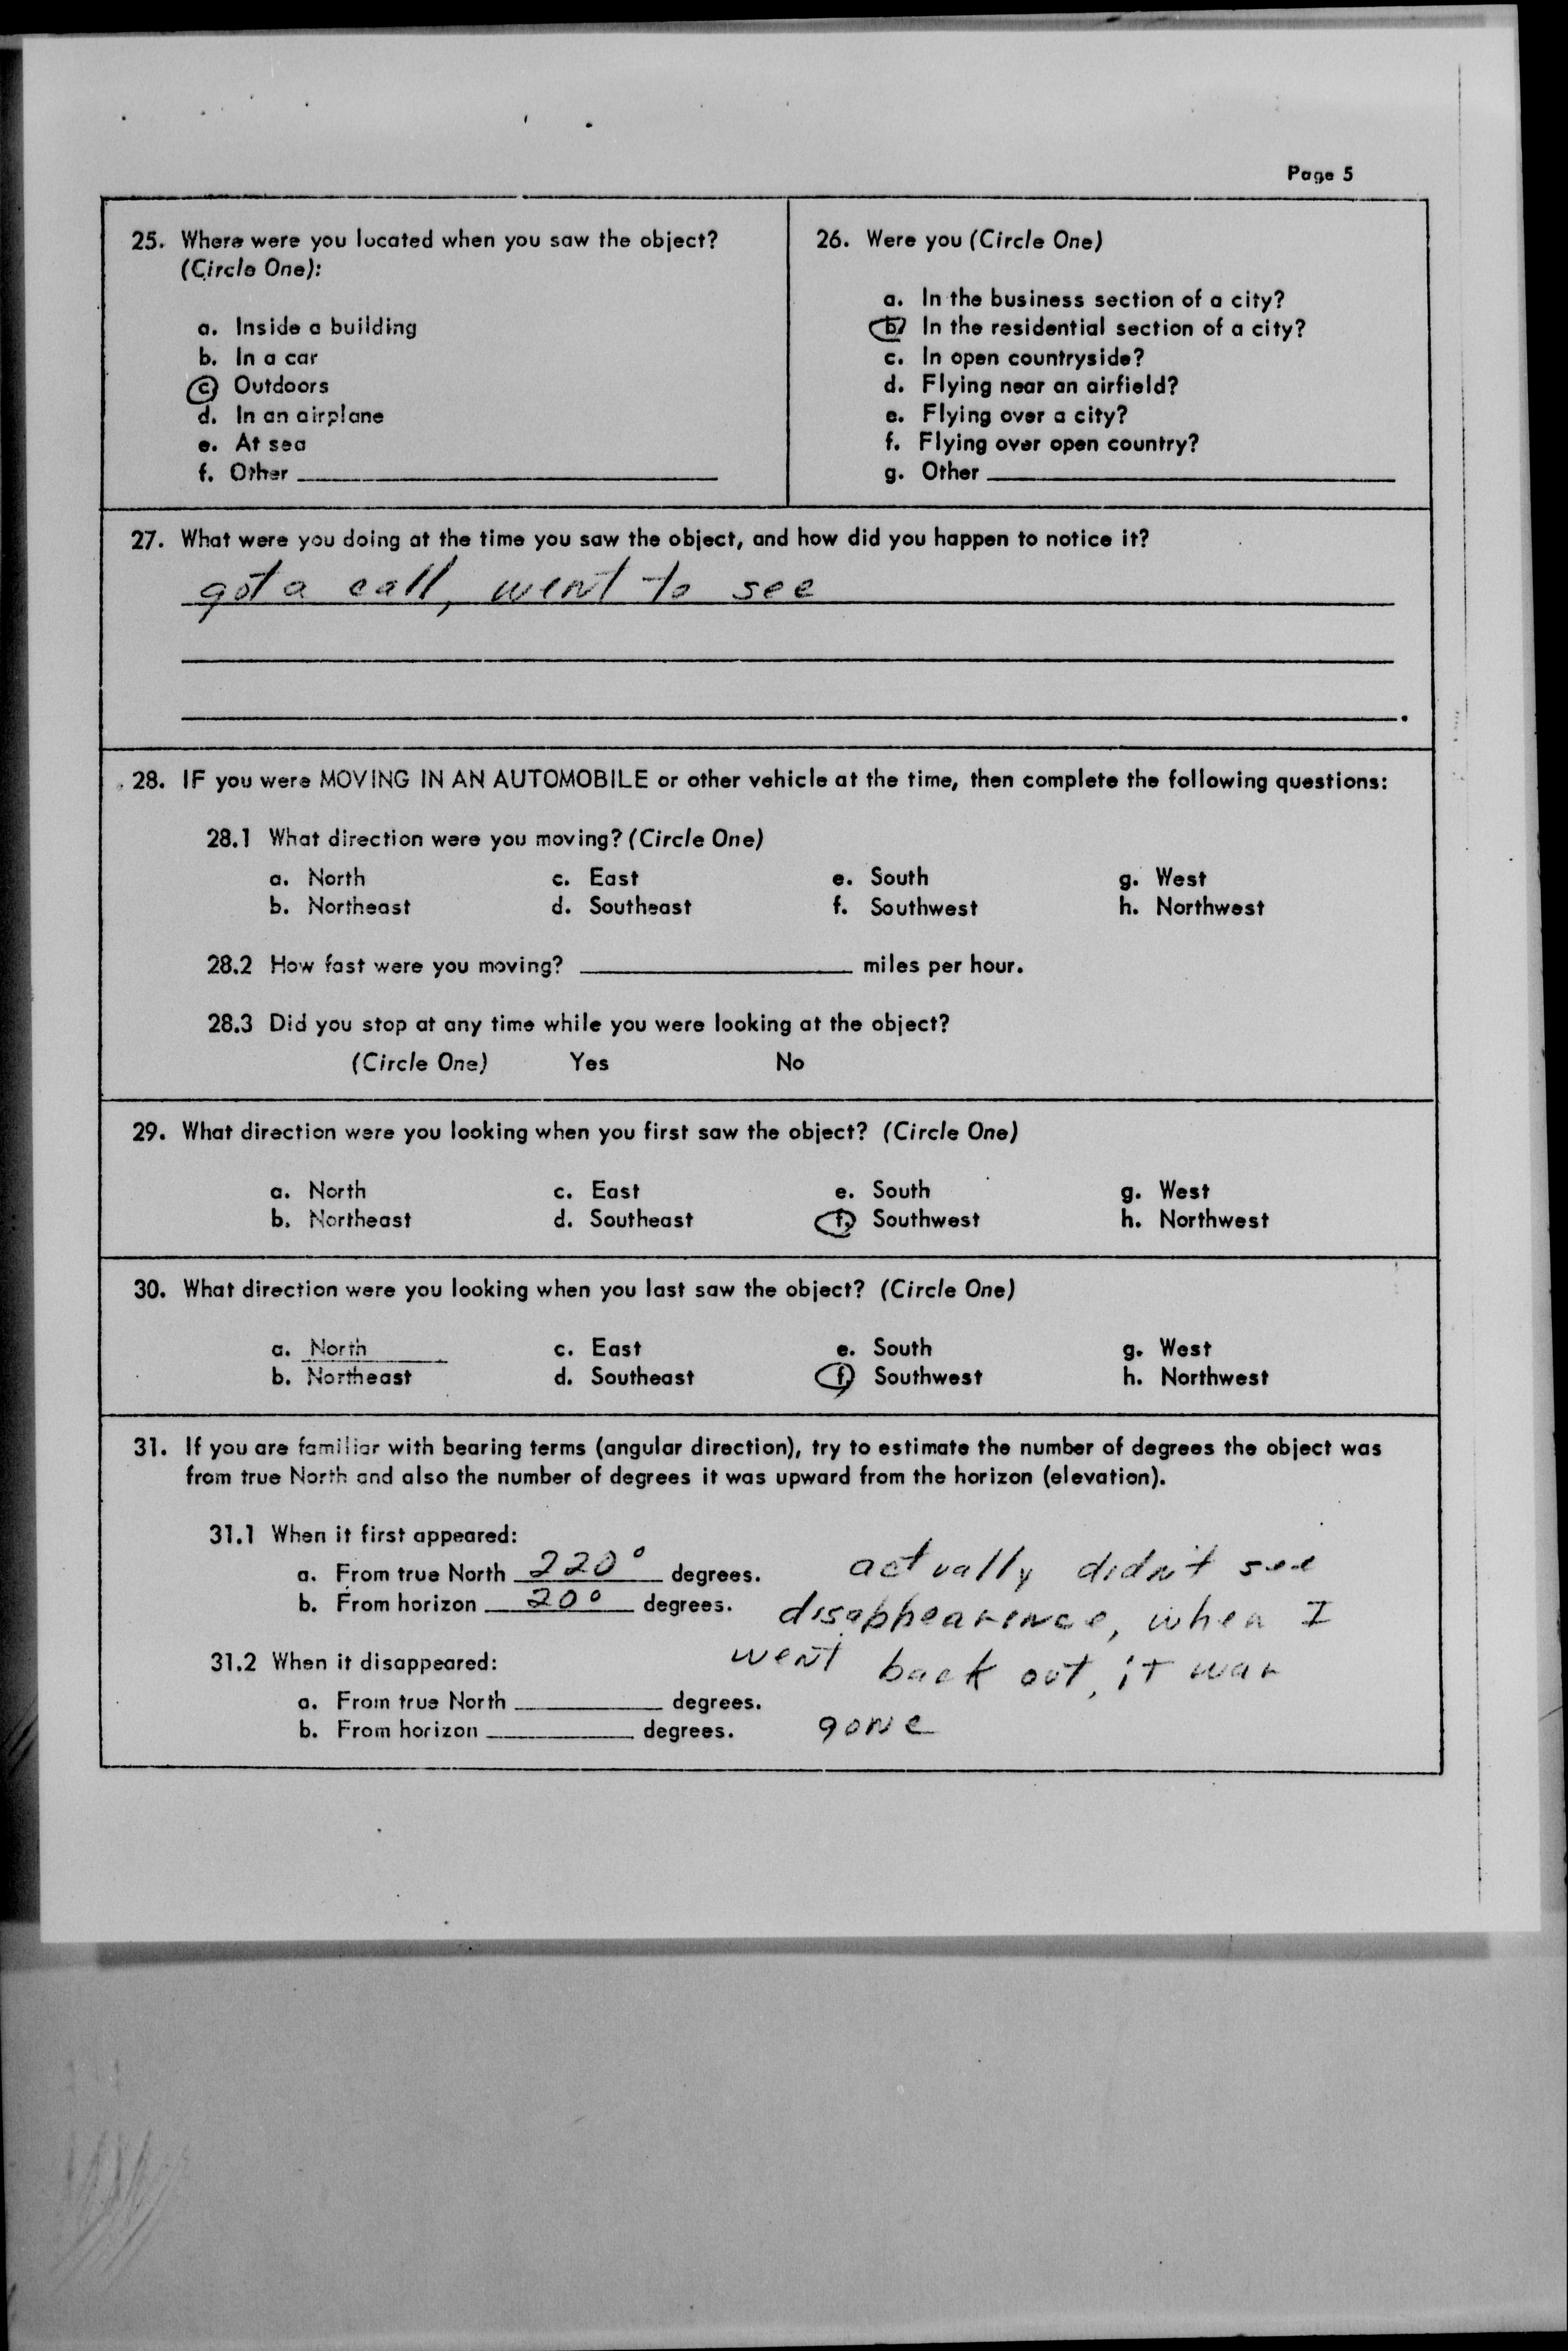 Page 5
25. Where were you located when you saw the object?
(Circle One):
a. Inside a building
b. In a car
c. Outdoors
d. In an airplane
e. At sea
f. Other
26. Were you (Circle One)
a. In the business section of a city?
b. In the residential section of a city?
c. In open countryside?
d. Flying near an airfield?
e. Flying over a city?
f. Flying over open country?
g. Other
27. What were you doing at the time you saw the object, and how did you happen to notice it?
got a call, went to see
28. IF you were MOVING IN AN AUTOMOBILE or other vehicle at the time, then complete the following questions:
28.1 What direction were you moving? (Circle One)
a. North c. East e. South g. West
b. Northeast d. Southeast f. Southwest h. Northwest
28.2 How fast were you moving? miles per hour.
28.3 Did you stop at any time while you were looking at the object?
(Circle One) Yes No
29. What direction were you looking when you first saw the object? (Circle One)
a. North c. East e. South g. West
b. Northeast d. Southeast f. Southwest h. Northwest
30. What direction were you looking when you last saw the object? (Circle One)
a. North c. East e. South g. West
b. Northeast d. Southeast f. Southwest h. Northwest
31. If you are familiar with bearing terms (angular direction), try to estimate the number of degrees the object was
from true North and also the number of degrees it was upward from the horizon (elevation).
31.1 When it first appeared:
a. From true North 220° degrees.
b. From horizon 20° degrees.
31.2 When it disappeared:
a. From true North degrees.
b. From horizon degrees.
actually didn't see
disappearence, when I
went back out, it was
gone